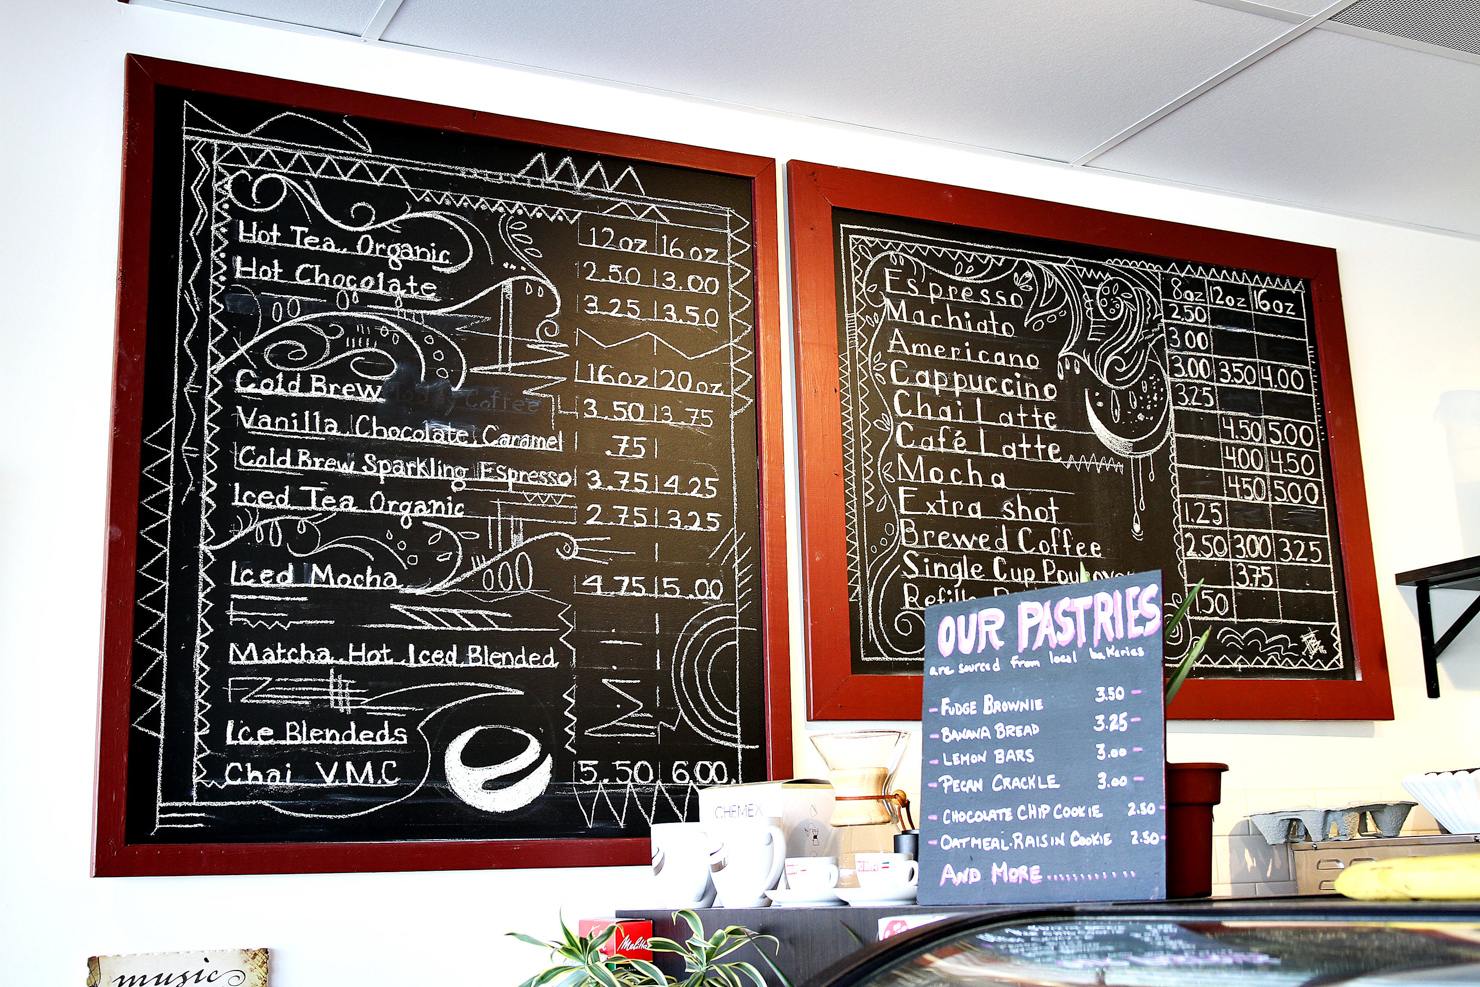 12oz 16oz
Hot Tea, Organic 2.50 3.00
Hot Chocolate 3.25 3.50
16oz 20oz
Cold Brew 3.50 3.75
Vanilla, Chocolate, Caramel .75
Cold Brew Sparkling Espresso 3.75 4.25
Iced Tea Organic 2.75 3.25
Iced Mocha 4.75 5.00
Matcha, Hot, Iced, Blended
Ice Blendeds
Chai V.M.C 5.50 6.00
8oz 12oz 16oz
Espresso 2.50
Machiato 3.00
Americano 3.00 3.50 4.00
Cappuccino 3.25
Chai Latte 4.50 5.00
Café Latte 4.00 4.50
Mocha 4.50 5.00
Extra shot 1.25
Brewed Coffee 2.50 3.00 3.25
Single Cup Pourover 3.75
Refills 1.50
OUR PASTRIES
are sourced from local bakeries
- FUDGE BROWNIE 3.50 -
- BANANA BREAD 3.25 -
- LEMON BARS 3.00 -
- PECAN CRACKLE 3.00 -
- CHOCOLATE CHIP COOKIE 2.50 -
- OATMEAL-RAISIN COOKIE 2.50 -
AND MORE...........
CHEMEX
Melitta
music